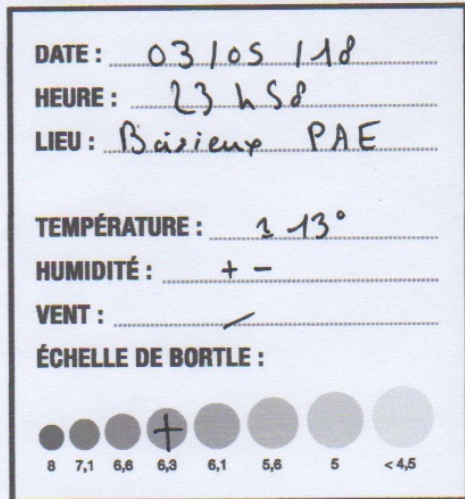 DATE : 03/05/18
HEURE : 23 h 58
LIEU : PAE
TEMPÉRATURE : ~ 13°
HUMIDITÉ : + -
VENT : /
ÉCHELLE DE BORTLE :
8 7,1 6,6 6,3 6,1 5,6 5 < 4,5